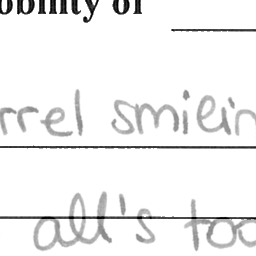 obility of
rrel smilin
all's too